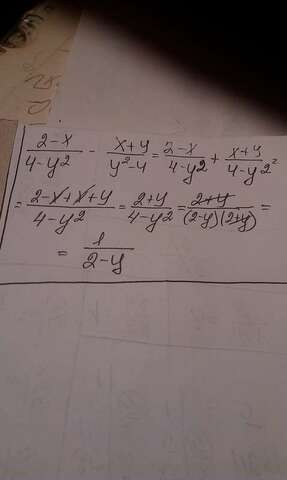 (2-x)/(4-y²) - (x+y)/(y²-4) = (2-x)/(4-y²) + (x+y)/(4-y²) =
= (2-x+x+y)/(4-y²) = (2+y)/(4-y²) = (2+y)/((2-y)(2+y)) =
= 1/(2-y)